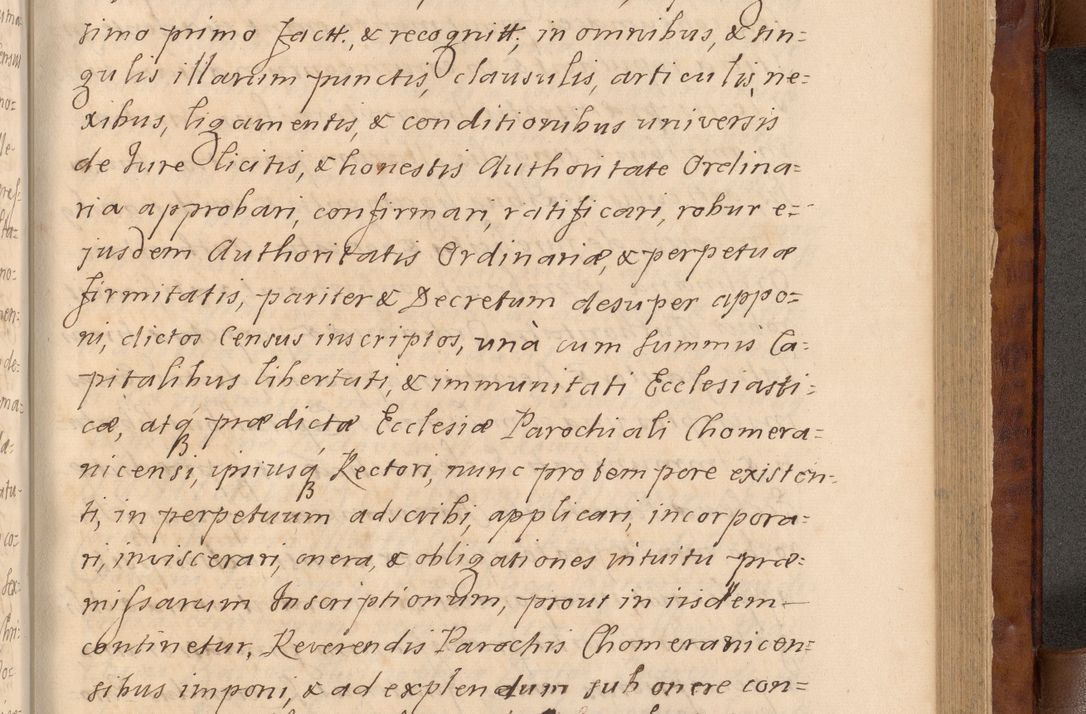 simo primo factt., & recognitt, in omnibus, & sin=
gulis illarum punctis, clausulis, articulis, ne=
xibus, ligamentis, & conditionibus universis
de Iure licitis, & honestis Authoritate Ordina=
ria approbari, confirmari, ratificari, robur e=
jusdem Authoritatis Ordinariæ, & perpetuæ
firmitatis, pariter & Decretum desuper appo=
ni, dictos Census inscriptos, unà cum summis Ca=
pitalibus libertati, & immunitati Ecclesiasti=
cæ, atq prædictæ Ecclesiæ Parochiali Chomera=
nicensi, ipsiusq Rectori, nunc pro tempore existen=
ti, in perpetuum adscribi, applicari, incorpora=
ri, inviscerari, onera, & obligationes intuitu præ=
missarum Inscriptionum, prout in iisdem
continetur, Reverendis Parochis Chomeranicen=
sibus imponi, & ad explendum sub onere con=